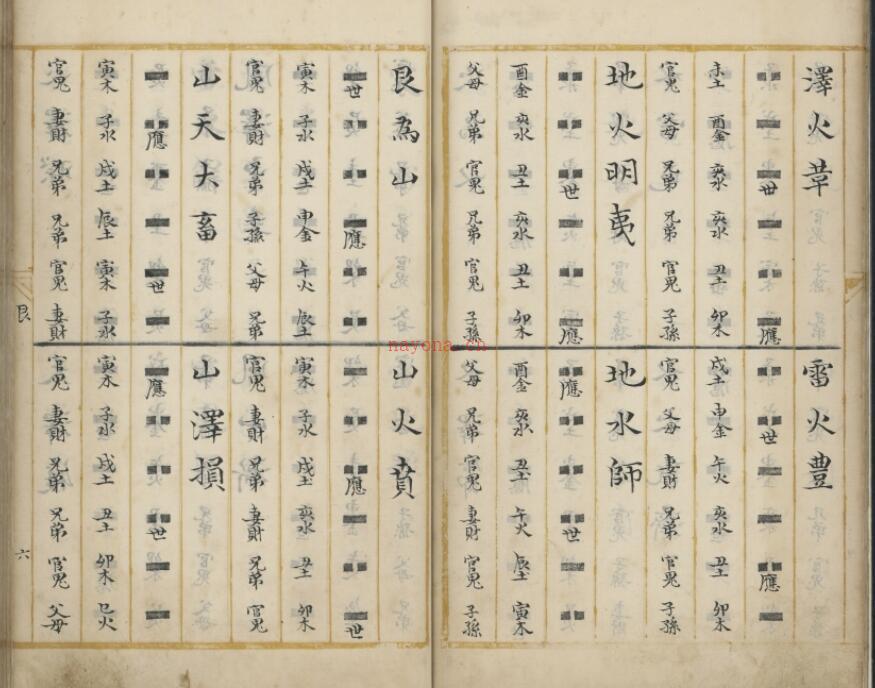 澤火革
世 應
未土 酉金 亥水 亥水 丑土 卯木
官鬼 父母 兄弟 兄弟 官鬼 子孫
雷火豊
世 應
戌土 申金 午火 亥水 丑土 卯木
官鬼 父母 妻財 兄弟 官鬼 子孫
地火明夷
世 應
酉金 亥水 丑土 亥水 丑土 卯木
父母 兄弟 官鬼 兄弟 官鬼 子孫
地水師
應 世
酉金 亥水 丑土 午火 辰土 寅木
父母 兄弟 官鬼 妻財 官鬼 子孫
艮為山
世 應
寅木 子水 戌土 申金 午火 辰土
官鬼 妻財 兄弟 子孫 父母 兄弟
山火賁
應 世
寅木 子水 戌土 亥水 丑土 卯木
官鬼 妻財 兄弟 妻財 兄弟 官鬼
山天大畜
應 世
寅木 子水 戌土 辰土 寅木 子水
官鬼 妻財 兄弟 兄弟 官鬼 妻財
山澤損
應 世
寅木 子水 戌土 丑土 卯木 巳火
官鬼 妻財 兄弟 兄弟 官鬼 父母
艮
六
nayona.cn